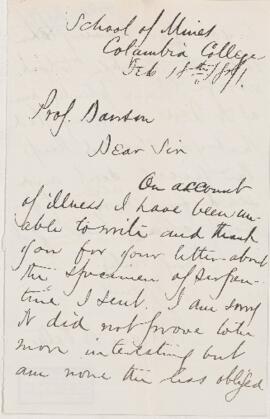 School of Mines
Columbia College
Feb 18th
Prof. Dawson
Dear Sir
On account
of illness I have been un-
able to write and thank
you for your letter about
the specimen of Serpen-
tine I sent. I am sorry
it did not prove to be
more interesting but
am none the less obliged